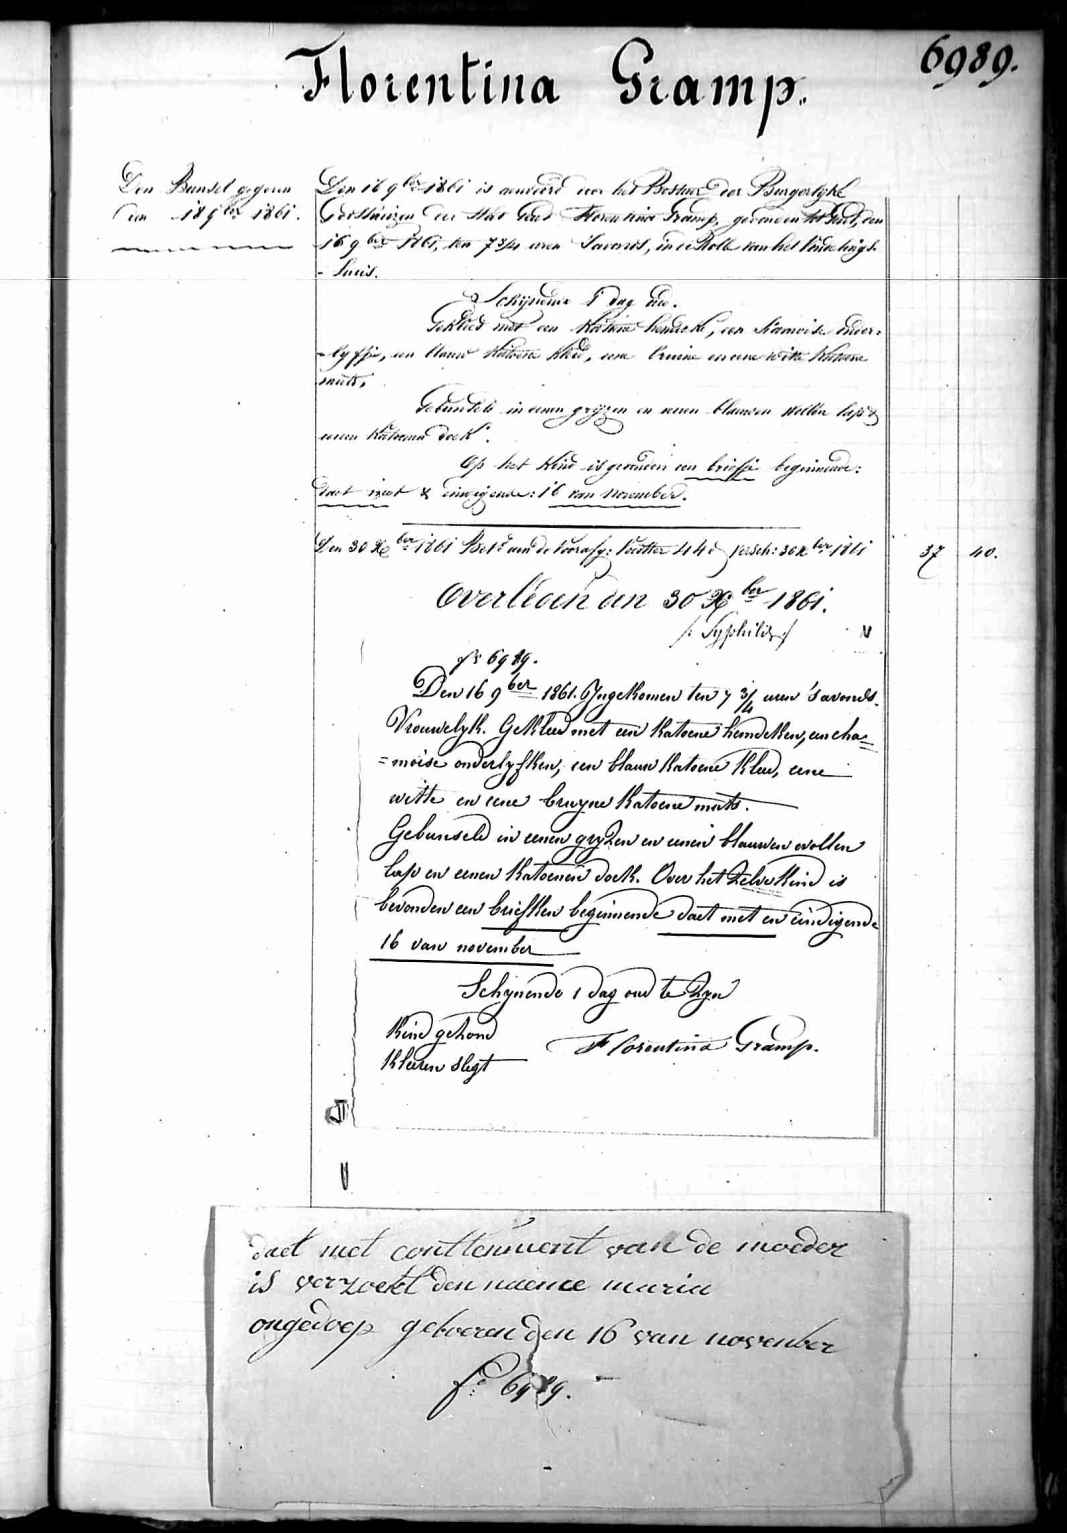 6989.
Florentina Gramp.
Den Bunsel gegeven
den 18 9ber 1861.
Den 16 9ber 1861 is aenveerd door het Bestuur der Burgerlyke
Godshuizen der Stad Gend Florentina Gramp, gevonden tot Gend, den
16 9ber 1861, ten 7 3/4 uren 'savonds, in de Rolle van het Vondelings-
- huis.
Schijnende 1 dag oud.
Gekleed met een katoene hemdeke, een siamoise onder-
- lyffje, een blauw katoene kleed, eene bruine en eene witte katoene
muts.
Gebunseld in eenen grijzen en eenen blauwen wollen lap &
eenen katoenen doek.
Op het kind is gevonden een briefje beginnende:
daet met & eindigende: 16 van november.
Den 30 Xber 1861 Bet. aan de voorafg: voetster 44 d versch: 30 Xber 1861 37 40.
Overleden den 30 Xber 1861.
/: Syphilis :/
fo 6989.
Den 16 9ber 1861. Ingekomen ten 7 3/4 uren 's avonds.
Vrouwelyk. Gekleed met een katoene hemdeken, een cha=
=moise onderlyfken, een blauw katoene kleed, eene
witte en eene bruyne katoene muts.
Gebunseld in eenen gryzen en eenen blauwen wollen
lap en eenen katoenen doek. Over het zelve kind is
bevonden een briefken beginnende daet met en eindigende
16 van november
Schynende 1 dag oud te zyn
Kind gezond
Kleeren slegt
Florentina Gramp.
daet met conttenment van de moeder
is verzoekt den naeme maria
ongedoep geboeren den 16 van november
fo 6989.